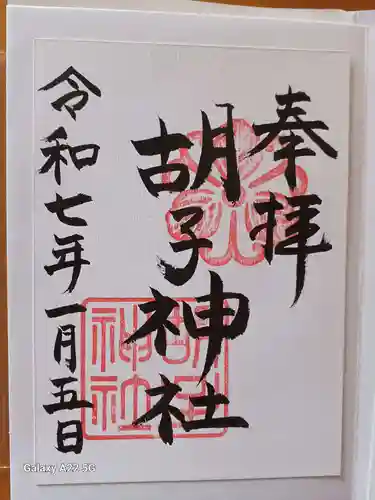 奉拝
胡子神社
令和七年一月五日
胡子神社
Galaxy A22 5G